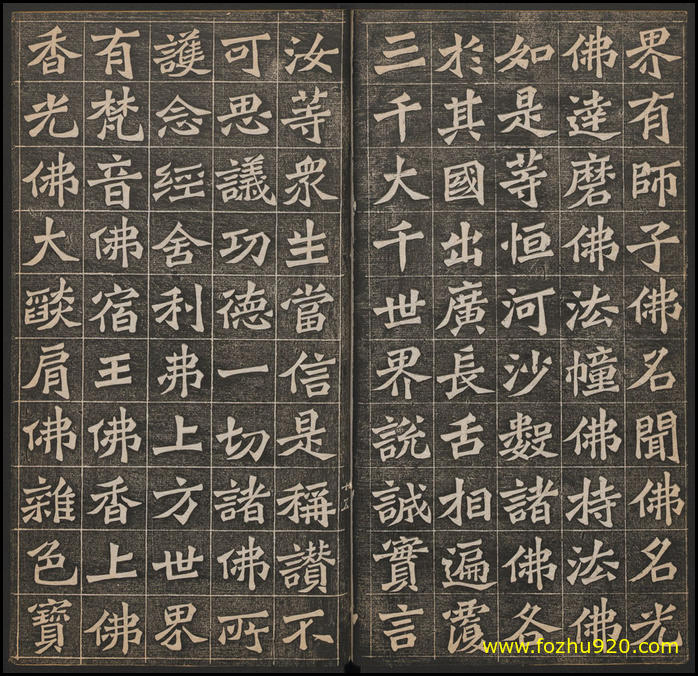 界有師子佛名聞佛名光
佛達磨佛法幢佛持法佛
如是等恒河沙數諸佛各
於其國出廣長舌相遍覆
三千大千世界說誠實言
十五
汝等衆生當信是稱讚不
可思議功德一切諸佛所
護念經舍利弗上方世界
有梵音佛宿王佛香上佛
香光佛大燄肩佛雜色寶
www.fozhu920.com